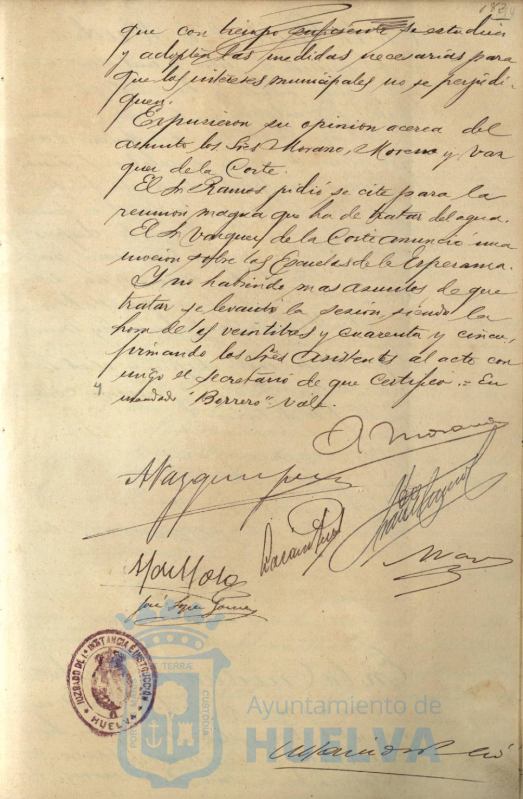 que con tiempo suficiente se estudien
y adopten las medidas necesarias para
que los intereses municipales no se perjudi-
quen.
Expusieron su opinion acerca del
asunto los Sres Morano, Moreno y Vaz
quez de la Corte.
El Sr Ramos pidió se cite para la
reunion magna que ha de tratar del agua.
El Sr Vazquez de la Corte anunció una
mocion sobre las Escuelas de la Esperanza.
Y no habiendo mas asuntos de que
tratar se levantó la sesión, siendo la
hora de veintitres y cuarenta y cinco,
firmando los Sres Asistentes al acto con
migo el Secretario de que certifico.= En
mendado "Borrero" Vale.
A Morano
A Vazquez
José Lopez Gomez
JUZGADO DE 1ª INSTANCIA E INSTRUCCIÓN
HUELVA
TERRÆ
CUSTODIA
Ayuntamiento de
HUELVA